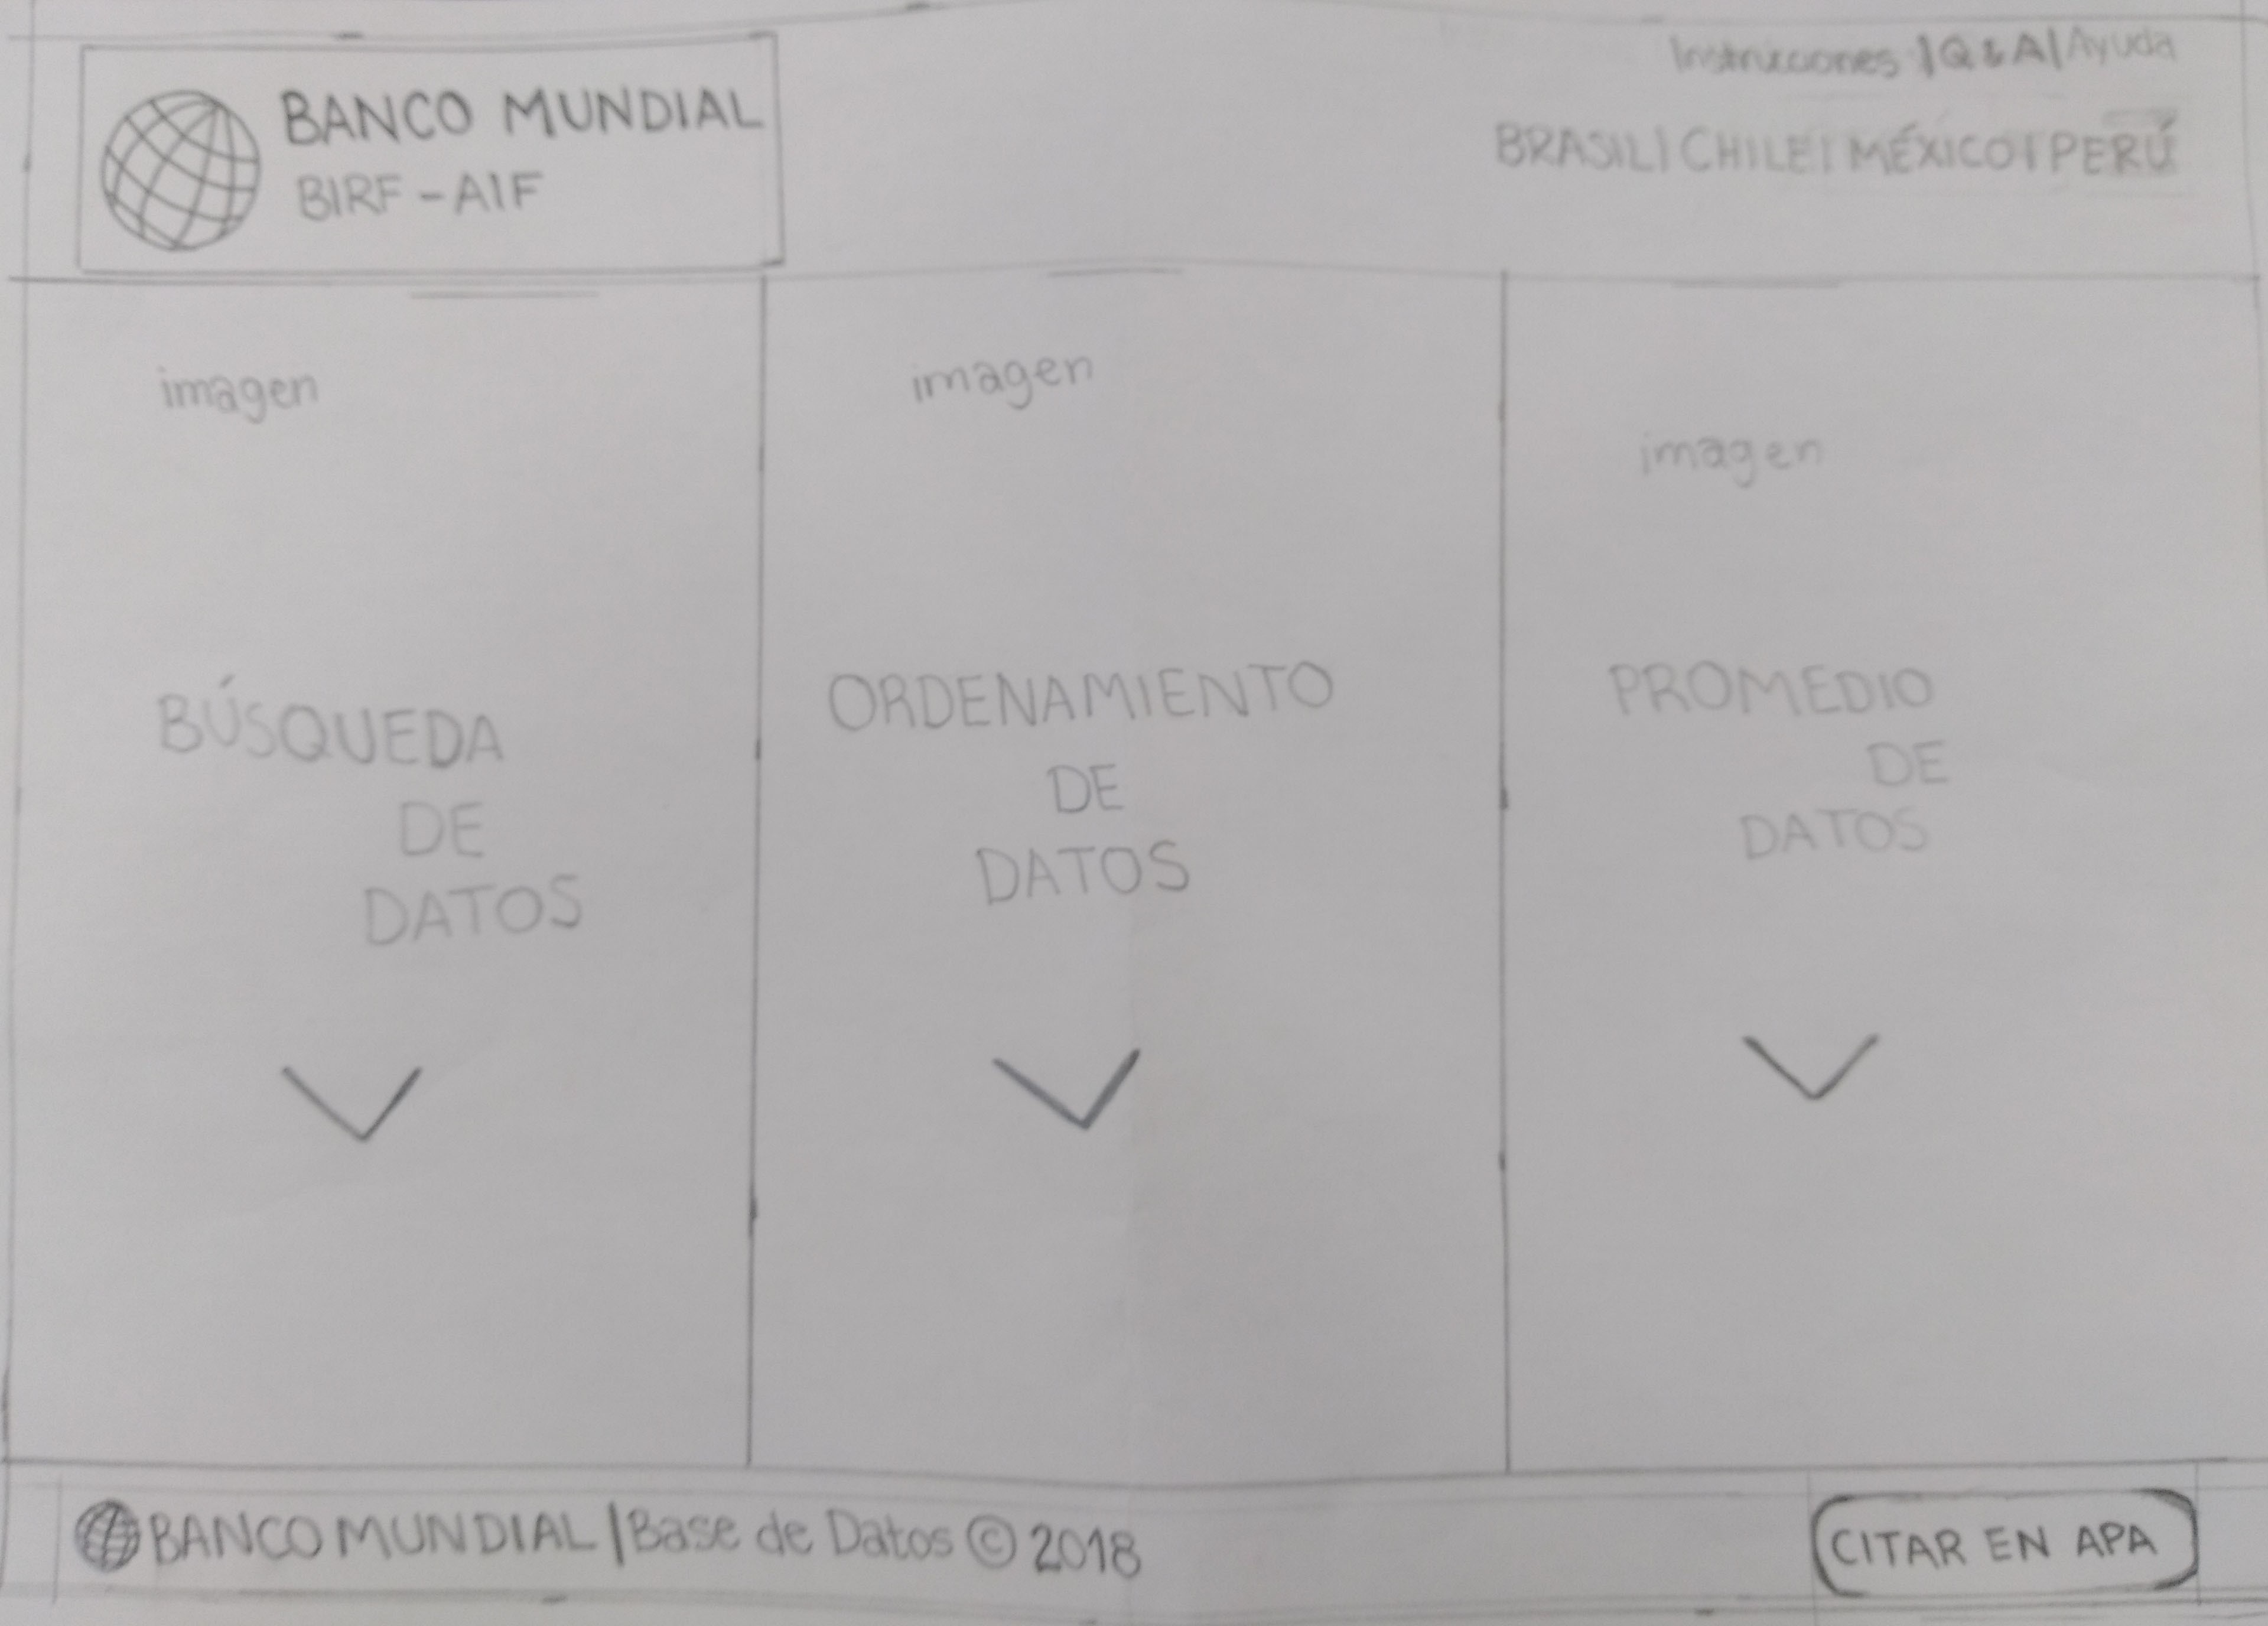 BANCO MUNDIAL
BIRF - AIF
Instrucciones | Q & A | Ayuda
BRASIL | CHILE | MÉXICO | PERÚ
imagen
BÚSQUEDA
DE
DATOS
imagen
ORDENAMIENTO
DE
DATOS
imagen
PROMEDIO
DE
DATOS
BANCO MUNDIAL | Base de Datos © 2018
CITAR EN APA